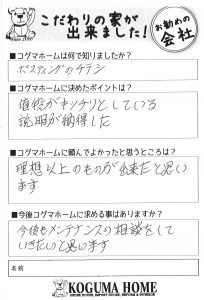 こだわりの家が
出来ました!
お勧めの
会社
■コグマホームは何で知りましたか?
ポスティングのチラシ
■コグマホームに決めたポイントは?
価格がキッチリとしている
説明が納得した
■コグマホームに頼んでよかったと思うところは?
理想以上のものが出来たと思い
ます
■今後コグマホームに求める事はありますか?
今後もメンテナンスの相談をして
いきたいと思います
名前
KOGUMA HOME
ORDER HOUSE, IMPORT HOUSE, REFORM & INTERIOR